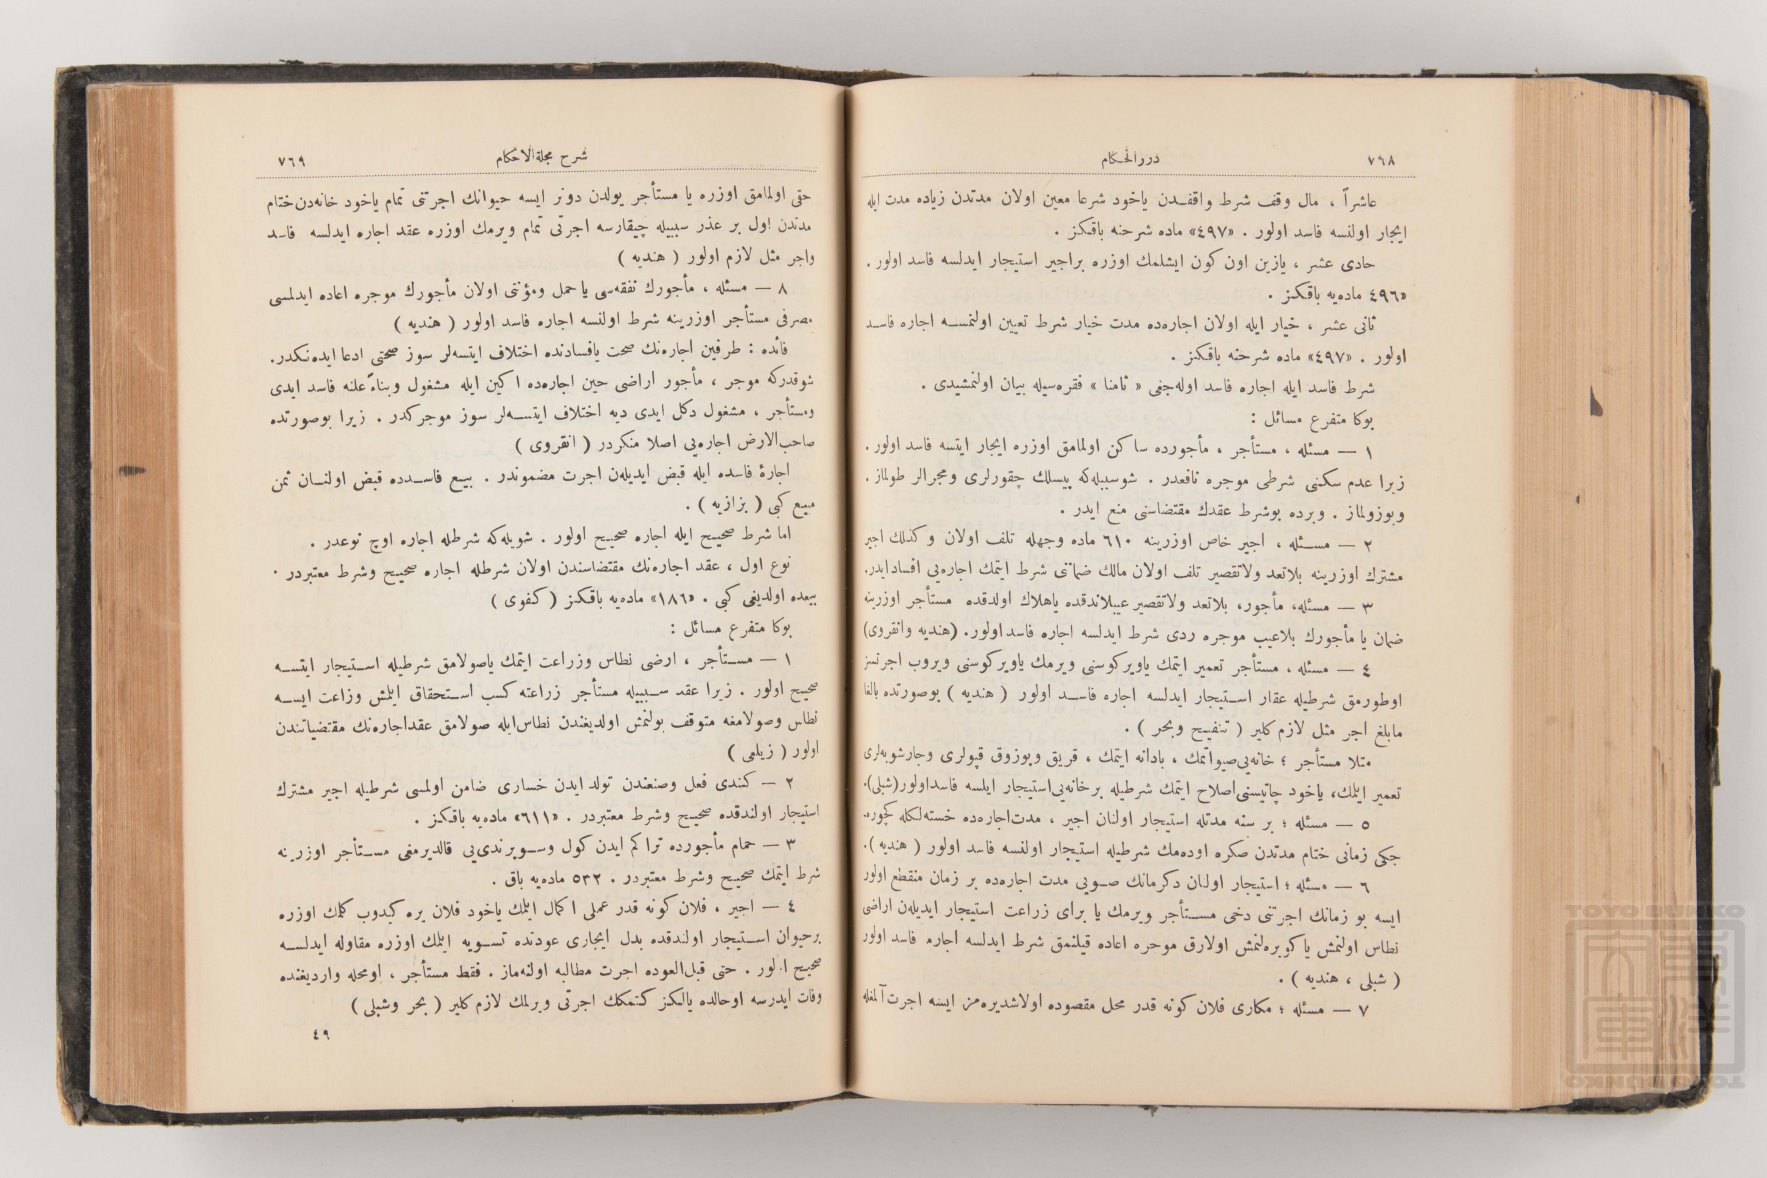 ٧٦٨
دررالحكام
عاشراً ، مال وقف شرط واقفدن ياخود شرعا معين اولان مدتدن زياده مدت ايله
ايجار اولنسه فاسد اولور . «٤٩٧» ماده شرحنه باقكز .
حادى عشر ، يازين اون كون ايشلمك اوزره براجير استيجار ايدلسه فاسد اولور .
«٤٩٦ ماده‌يه باقكز .
ثانى عشر ، خيار ايله اولان اجاره‌ده مدت خيار شرط تعيين اولنمسه اجاره فاسد
اولور . «٤٩٧» ماده شرحنه باقكز .
شرط فاسد ايله اجاره فاسد اوله‌جغى « ثامنا » فقره‌سيله بيان اولنمشيدى .
بوكا متفرع مسائل :
١ — مسئله ، مستأجر ، مأجورده ساكن اولمامق اوزره ايجار ايتسه فاسد اولور .
زيرا عدم سكنى شرطى موجره نافعدر . شوسببله‌كه پيسلك چقورلرى ومجرالر طولماز .
وبوزولماز . وبرده بوشرط عقدك مقتضاسنى منع ايدر .
٢ — مسئله ، اجير خاص اوزرينه ٦١٠ ماده وجهله تلف اولان وكذلك اجير
مشترك اوزرينه بلاتعد ولاتقصير تلف اولان مالك ضماننى شرط ايتمك اجاره‌يى افسادايدر.
٣ — مسئله، مأجور، بلاتعد ولاتقصير عيبلاندقده ياهلاك اولدقده مستأجر اوزرينه
ضمان يا مأجورك بلاعيب موجره ردى شرط ايدلسه اجاره فاسد اولور. (هنديه وانقروى)
٤ — مسئله ، مستأجر تعمير ايتمك ياويركوسنى ويرمك ياويركوسنى ويروب اجرتسز
اوطورمق شرطيله عقار استيجار ايدلسه اجاره فاسد اولور ( هنديه ) بوصورتده بالغا
مابلغ اجر مثل لازم كلير ( تنقيح وبحر ) .
مثلا مستأجر ؛ خانه‌يى‌صيواتمك ، بادانه ايتمك ، قريق وبوزوق قپولرى وجارشوبه‌لرى
تعمير ايتمك، ياخود چاتيسنى‌اصلاح ايتمك شرطيله برخانه‌يى‌استيجار ايلسه فاسداولور(شبلى).
٥ — مسئله ؛ بر سنه مدتله استيجار اولنان اجير ، مدت‌اجاره‌ده خسته‌لكله كچوره‌
جكى زمانى ختام مدتدن صكره اوده‌مك شرطيله استيجار اولنسه فاسد اولور ( هنديه ).
٦ — مسئله ؛ استيجار اولنان دكرمانك صويى مدت اجاره‌ده بر زمان منقطع اولور
ايسه بو زمانك اجرتنى دخى مستأجر ويرمك يا براى زراعت استيجار ايديلەن اراضى
نطاس اولنمش يا كوبره‌لنمش اولارق موجره اعاده قيلنمق شرط ايدلسه اجاره فاسد اولور
( شبلى ، هنديه ) .
٧ — مسئله ؛ مكارى فلان كونه قدر محل مقصوده اولاشديره‌مز ايسه اجرت آلمغله
٧٦٩
شرح مجلةالاحكام
حتى اولمامق اوزره يا مستأجر يولدن دونر ايسه حيوانك اجرتنى تمام ياخود خانه‌دن‌ختام
مدتدن اول بر عذر سببيله چيقارسه اجرتى تمام ويرمك اوزره عقد اجاره ايدلسه فاسد
واجر مثل لازم اولور ( هنديه )
٨ — مسئله ، مأجورك نفقه‌سى يا حمل ومؤنتى اولان مأجورك موجره اعاده ايدلمسى
مصرفى مستأجر اوزرينه شرط اولنسه اجاره فاسد اولور ( هنديه )
فائده : طرفين اجاره‌نك صحت يافسادنده اختلاف ايتسه‌لر سوز صحتى ادعا ايده‌نكدر.
شوقدركه موجر ، مأجور اراضى حين اجاره‌ده اكين ايله مشغول وبناءً‌علنه فاسد ايدى
ومستأجر ، مشغول دكل ايدى ديه اختلاف ايتسه‌لر سوز موجركدر . زيرا بوصورتده
صاحب‌الارض اجاره‌يى اصلا منكردر ( انقروى )
اجارهٔ فاسده ايله قبض ايديلەن اجرت مضموندر . بيع فاسدده قبض اولنان ثمن
مبيع كبى ( بزازيه ) .
اما شرط صحيح ايله اجاره صحيح اولور . شويله‌كه شرطله اجاره اوچ نوعدر .
نوع اول ، عقد اجاره‌نك مقتضاسندن اولان شرطله اجاره صحيح وشرط معتبردر .
بيعده اولديغى كبى . «١٨٦» ماده‌يه باقكز ( كفوى )
بوكا متفرع مسائل :
١ — مستأجر ، ارضى نطاس وزراعت ايتمك ياصولامق شرطيله استيجار ايتسه
صحيح اولور . زيرا عقد سببيله مستأجر زراعته كسب استحقاق ايتمش وزاعت ايسه
نطاس وصولامغه متوقف بولنمش اولديغندن نطاس‌ايله صولامق عقداجاره‌نك مقتضياتندن
اولور ( زيلعى )
٢ — كندى فعل وصنعندن تولد ايدن خسارى ضامن اولمسى شرطيله اجير مشترك
استيجار اولندقده صحيح وشرط معتبردر . «٦١١» ماده‌يه باقكز .
٣ — حمام مأجورده تراكم ايدن كول وسوپرندى‌يى قالديرمغى مستأجر اوزرينه
شرط ايتمك صحيح وشرط معتبردر . ٥٣٢ ماده‌يه باق .
٤ — اجير ، فلان كونه قدر عملى اكمال ايتمك ياخود فلان يره كيدوب كلمك اوزره
برحيوان استيجار اولندقده بدل ايجارى عودتده تسويه ايتمك اوزره مقاوله ايدلسه
صحيح اولور . حتى قبل‌العوده اجرت مطالبه اولنه‌ماز . فقط مستأجر ، اومحله وارديغنده
وفات ايدرسه اوحالده يالكز كتمكك اجرتى ويرلمك لازم كلير ( بحر وشبلى )
٤٩
TOYO BUNKO
TOYO BUNKO